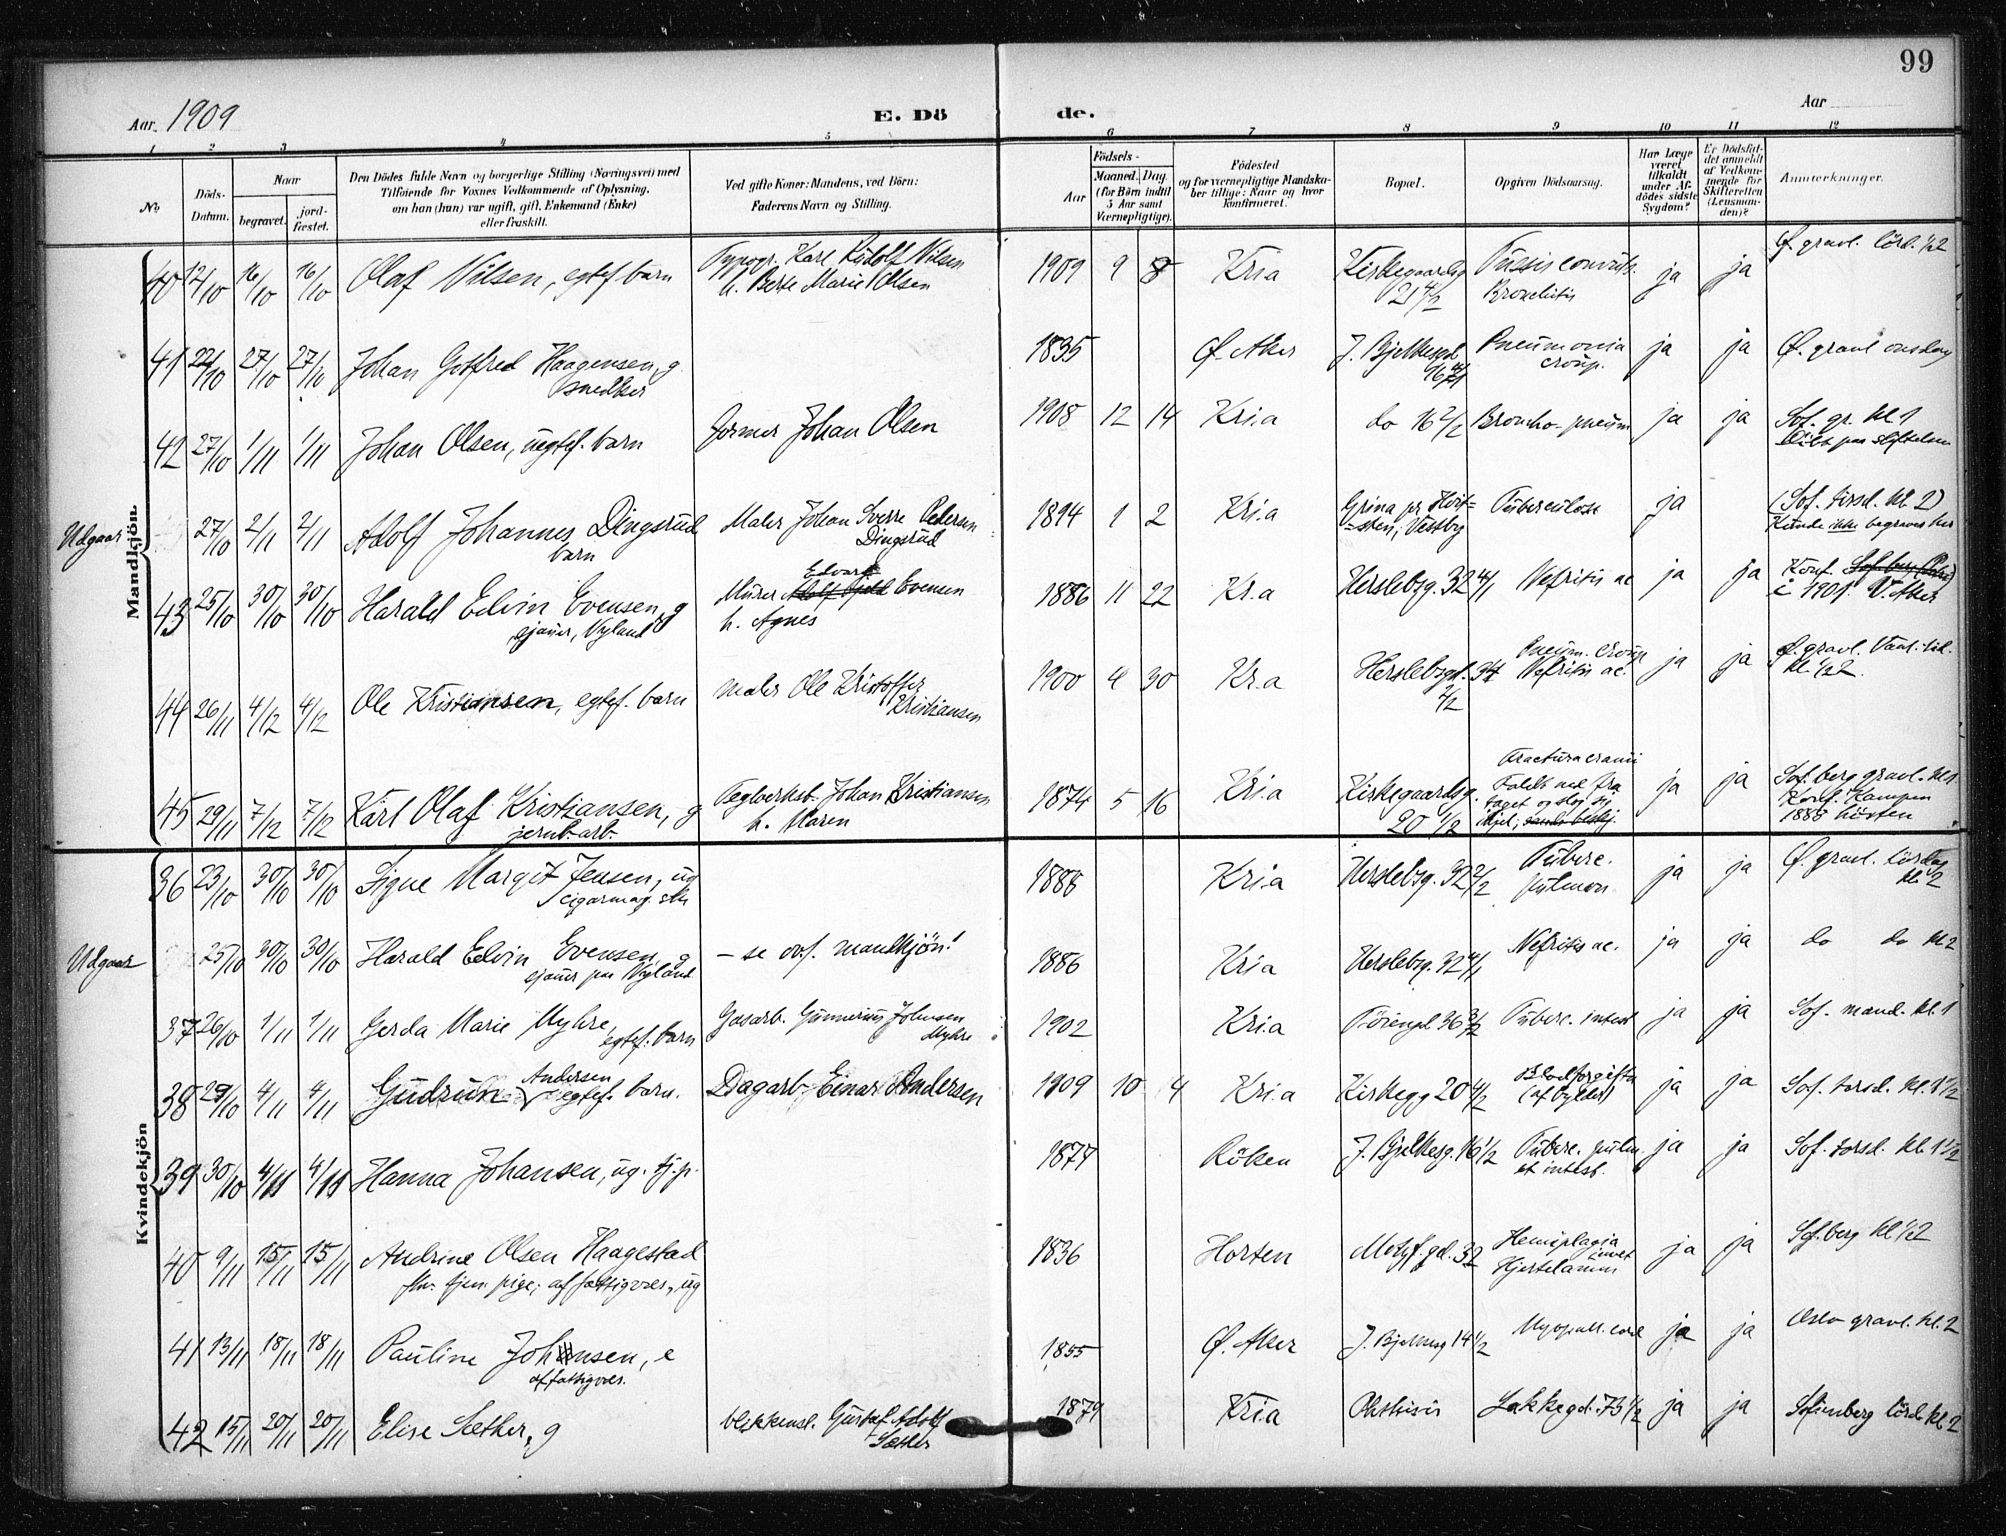 99
Aar 1909
E. Dö de.
Aar
1 2 3 4 5 6 7 8 9 10 11 12
No
Döds-Datum.
Naar
begravet.
jord-fæstet.
Den Dödes fulde Navn og borgerlige Stilling (Næringsvei) med
Tilföiende for Voxnes Vedkommende af Oplysning,
om han (hun) var ugift, gift, Enkemand (Enke)
eller fraskilt.
Ved gifte Koner: Mandens, ved Börn:
Faderens Navn og Stilling.
Födsels-
Aar
Maaned. Dag
(for Börn indtil
5 Aar samt
Værnepligtige).
Födested
og for værnepligtige Mandska-
ber tillige: Naar og hvor
konfirmeret.
Bopæl.
Opgiven Dödsaarsag.
Har Læge
været
tilkaldt
under Af-
dödes sidste
Sygdom?
Er Dödsfal-
det anmeldt
af Vedkom-
mende for
Skifteretten
(Lensman-
den)?
Anmerkninger.
Mandkjön.
40 12/10 16/10 16/10 Olaf Nilsen, egtef. barn Typogr. Karl Rudolf Nilsen 1909 9 8 Kria Kirkegaardsg Tussis convuls. ja ja Ø. gravl. lörd. 1/2 2
h. Berte Marie Olsen 21 4/2 Bronchitis
41 22/10 27/10 27/10 Johan Gotfred Haagensen, g 1835 Ø. Aker J. Bjelkesgd Pneumonia ja ja Ø. gravl onsdag
snedker 16 croup.
42 27/10 1/11 1/11 Johan Olsen, uegtef. barn Former Johan Olsen 1908 12 14 Kria do 16 2/2 Broncho-pneum ja ja Sof. gr. kl 1
Udgaar 27/10 2/11 2/11 Adolf Johannes Dingsrud Maler Johan Sverre Petersen 1894 1 2 Kria Grina pr Hvit- Tuberculose ja (Sof. tirsd. kl 2)
barn Dingsrud -sten, Vestby Kunde ikke begraves her
43 25/10 30/10 30/10 Harald Edvin Evensen, g Murer Edvard Evensen 1886 11 22 Kr.a Herslebsg. 32 4/1 Nefritis ac ja ja Konf.
sjauer, Nyland h. Agnes i 1901 V. Aker
44 26/11 4/12 4/12 Ole Kristiansen, egtef. barn Maler Ole Kristoffer 1900 4 30 Kr.a Herslebsgd. 34 Pneum. croup ja ja Ø. gravl.
Kristiansen 2/2 Nefritis ac. kl. 1/2 2.
45 29/11 7/12 7/12 Karl Olaf Kristiansen, g Teglverksb. Johan Kristiansen 1874 5 16 Kria Kirkegaardsg. Fractura cranii ja ja Sof. berg gravl. kl 1
jernb-arb. h. Maren 20 1/2 Faldt ned fra taget og slog sig ihjel, Konf. Kampen
1888 hösten
Kvindekjön
36 23/10 30/10 30/10 Signe Margit Jensen, ug 1888 Kria Herslebsg. 32 2/2 Tuberc. ja ja Ø. gravl. lördag
cigarmag. pulmon. kl 2
Udgaar 25/10 30/10 30/10 Harald Edvin Evensen, g - se ovf. mandkjön! 1886 Kria Herslebsg. 32 4/1 Nefritis ac. ja ja do do kl 2
sjauer paa Nyland
37 26/10 1/11 1/11 Gerda Marie Myhre, Gasarb. Gunnerius Johnsen 1902 Kria Töiengd 36 3/2 Tuberc. intest ja ja Sof. mand. kl. 1
egtef. barn Myhre
38 29/10 4/11 4/11 Gudrun Andersen egtef. barn. Dagarb. Einar Andersen 1909 10 4 Kria Kirkegg 20 4/2 Blodforgiftn ja ja Sof. torsd. kl. 1 1/2
(af bylder)
39 30/10 4/11 4/11 Hanna Johansen, ug. tj.p. 1877 Röken J. Bjelkesg. 16 1/2 Tuberc. pulm. ja ja Sof. torsd. kl. 1 1/2
et intest.
40 9/11 15/11 15/11 Andrine Olsen Haagestad 1836 Horten Motzf. gd. 32 Hemiplegia ja ja Sof.berg kl 1/2 2
fhv. tjen. pige, af fattigvæs., ug Hjertelamm
41 13/11 18/11 18/11 Pauline Johansen, e 1855 Ø. Aker J. Bjelkesg 14 1/2 Myopatl. cord ja ja Oslo gravl. kl. 2
af fattigvæs.
42 15/11 20/11 20/11 Elise Sæther, g blikkensl. Gustaf Adolf 1879 Kria Phthisis Lakkegd. 75 1/2 ja ja Sofienberg lörd. kl 2
Sæther